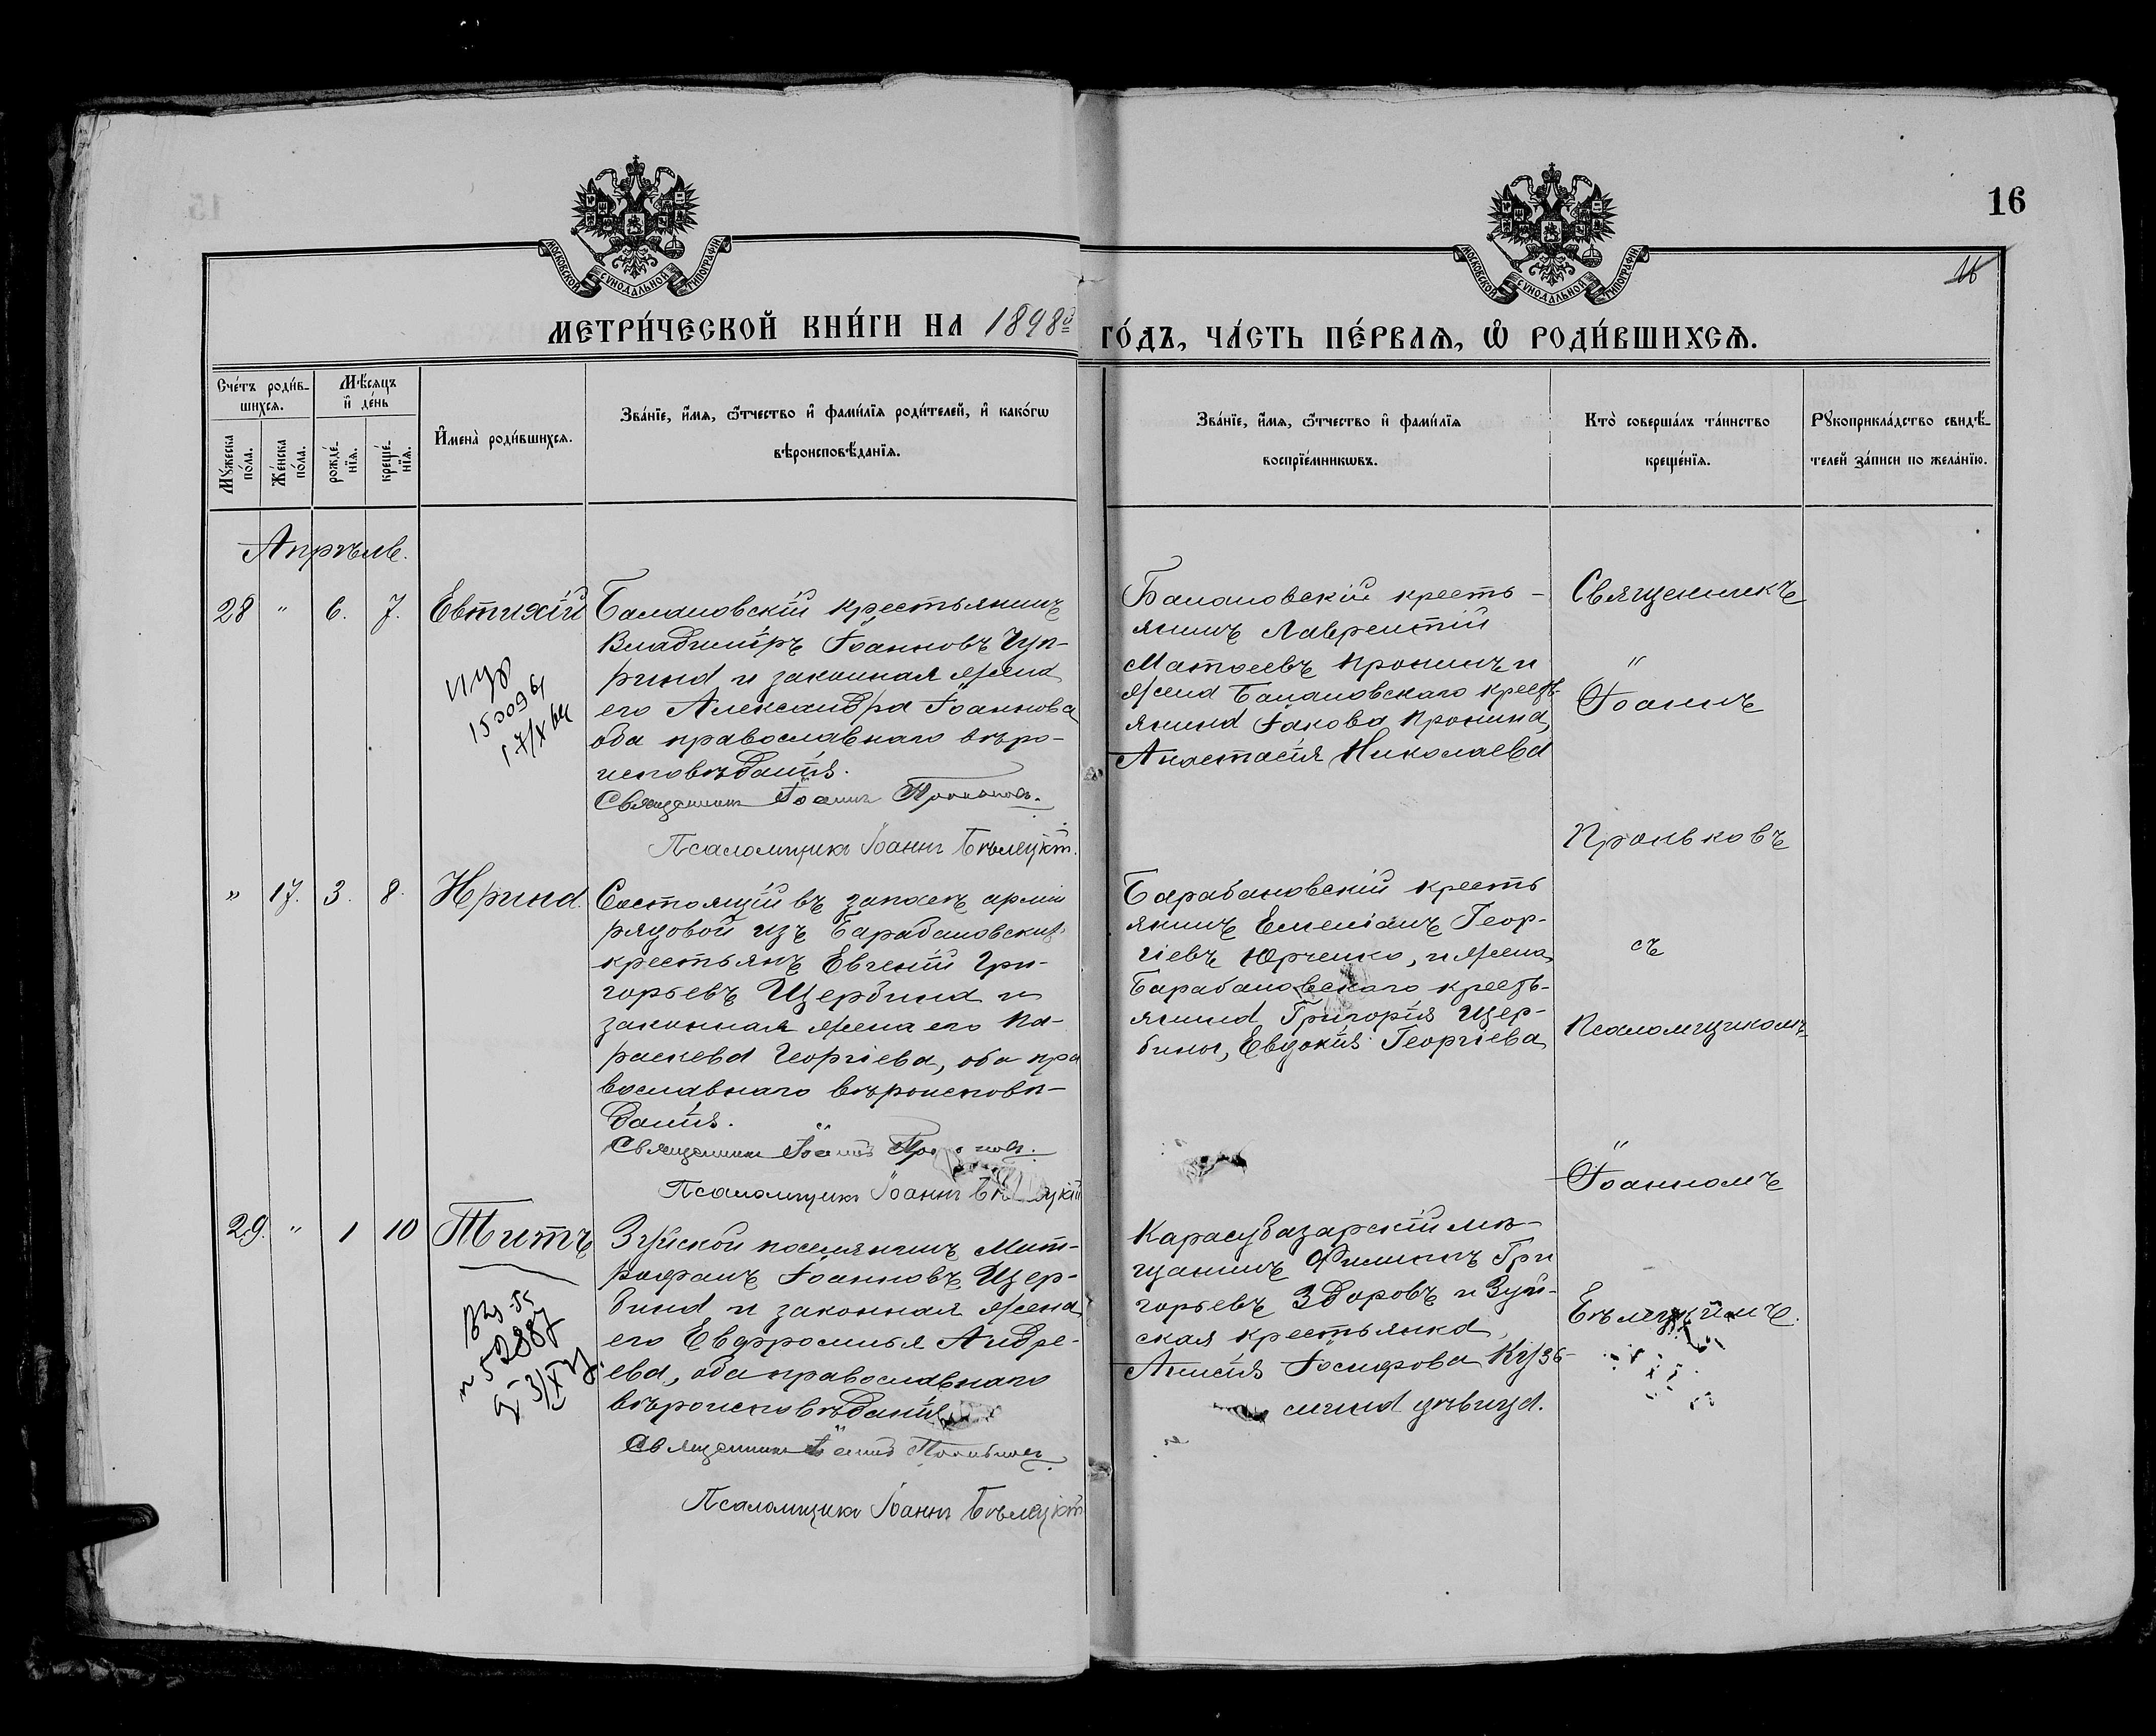 16
16
МОСКОВСКОЙ СѴНОДАЛЬНОЙ ТИПОГРАФІИ
МОСКОВСКОЙ СѴНОДАЛЬНОЙ ТИПОГРАФІИ
МЕТРИ́ЧЕСКОЙ КНИ́ГИ НА 1898й ГО́ДЪ, ЧА́СТЬ ПЕ́РВАѦ, Ѡ҆ РОДИ́ВШИХСѦ.
Сче́тъ роди́в-
шихсѧ.
Мꙋ́жеска
по́ла.
Же́нска
по́ла.
Мѣ́сѧцъ
и҆ де́нь
рожде́-
нїѧ.
креще́-
нїѧ.
И҆мена̀ роди́вшихсѧ.
Зва́нїе, и҆́мѧ, ѻ҆́тчество и҆ фами́лїѧ роди́телей, и҆ како́гѡ
вѣроисповѣ́данїѧ.
Зва́нїе, и҆́мѧ, ѻ҆́тчество и҆ фами́лїѧ
воспрїе́мникѡвъ.
Кто̀ соверша́лъ та́инство
креще́нїѧ.
Рꙋкоприкла́дство свидѣ́-
телей за́писи по жела́нїю.
Апрѣль.
28 " 6. 7. Евтихій
Балановскій крестьянинъ
Владиміръ Іоанновъ Чуп-
рина и законная жена
его Александра Іоаннова
оба православнаго вѣро-
исповѣданія.
Священникъ Іоаннъ Проньковъ.
Псаломщикъ Іоаннъ Бѣлецкій.
150096
17/X
Балановскій кресть-
янинъ Лаврентій
Матѳеевъ Пронинъ и
жена Балановскаго кресть-
янина Іакова Пронина,
Анастасія Николаева
Священникъ
Іоаннъ
Проньковъ
съ
Псаломщикомъ
Іоанномъ
Бѣлецкимъ.
" 17. 3. 8. Ирина.
Состоящій въ запасѣ арміи
рядовой изъ Барабановскихъ
крестьянъ Евгеній Гри-
горьевъ Щербина и
законная жена его Па-
раскева Георгіева, оба пра
вославнаго вѣроисповѣ-
данія.
Священникъ Іоаннъ Проньковъ.
Псаломщикъ Іоаннъ Бѣлецкій
Барабановскій кресть
янинъ Емеліанъ Геор-
гіевъ Юрченко, и жена
Барабановскаго кресть-
янина Григорія Щер-
бины, Евдокія Георгіева
29. " 1 10 Титъ
Зуйскій поселянинъ Мит-
рофанъ Іоанновъ Щер-
бина и законная жена
его Евфросинья Андре-
ева, оба православнаго
вѣроисповѣданія
Священникъ Іоаннъ Проньковъ.
Псаломщикъ Іоаннъ Бѣлецкій
52887
3/X
Карасубазарскій мѣ-
щанинъ Филиппъ Гри
горьевъ Здоровъ и Зуй-
ская крестьянка,
Анисія Іосифова Кузь-
мина дѣвица.